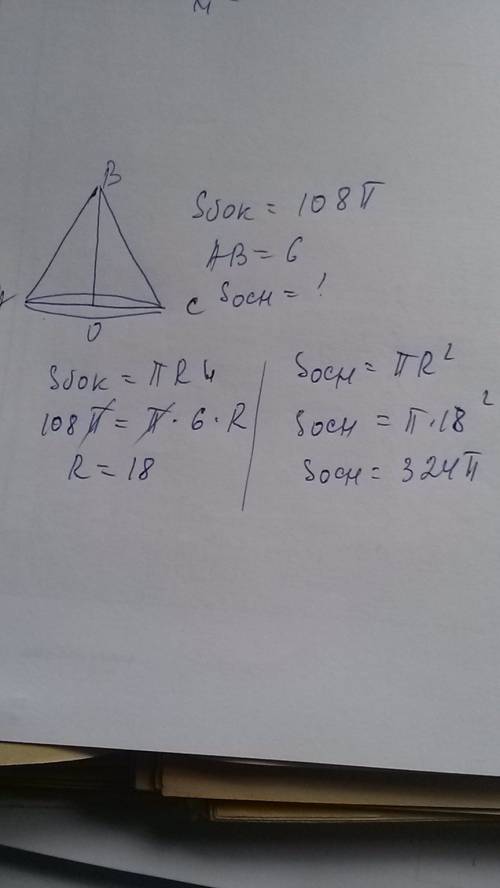 B
Sбок = 108π
AB = 6
C Sосн = !
O
Sбок = πR4
108π = π · 6 · R
R = 18
Sосн = πR²
Sосн = π·18²
Sосн = 324π